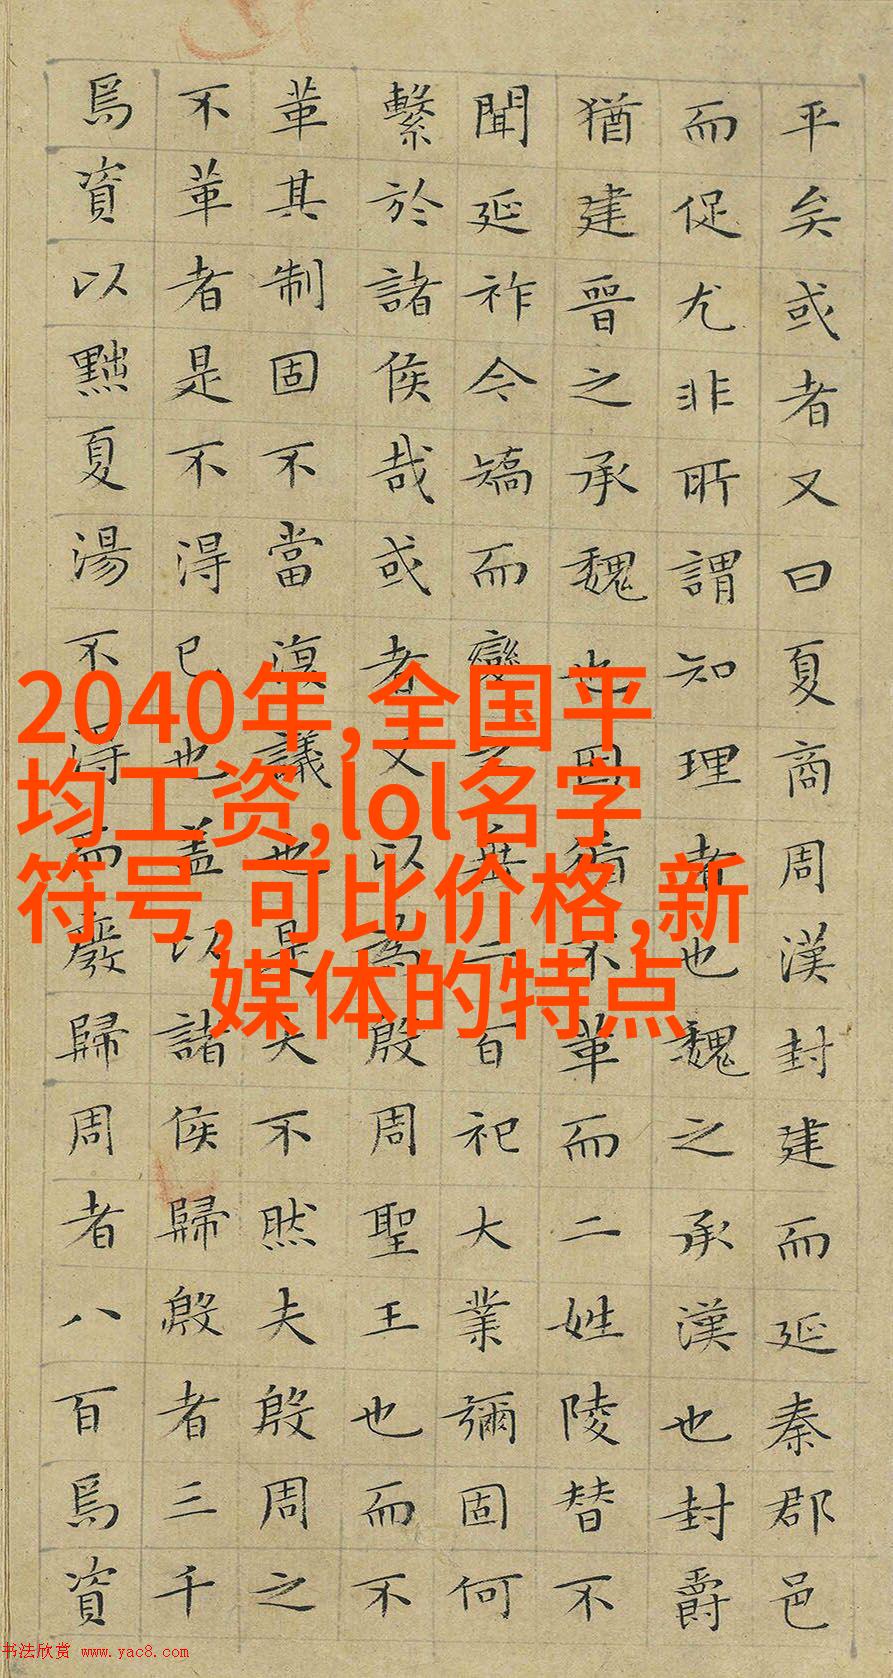 平矣或者又曰夏商周漢封建而延秦郡邑
而促尤非所謂知理者也魏之承漢也封爵
猶建晉之承魏也因循不革而二姓陵替不
聞延祚今矯而變之垂二百祀大業彌固何
繫於諸侯哉或者又以為殷周聖王也而不
革其制固不當復議也是大不然夫殷周之
不革者是不得已也蓋以諸侯歸殷者三千
焉資以黜夏湯不得而廢歸周者八百焉資
2040年,全国平
均工资,lol名字
符号,可比价格,新
媒体的特点
书法欣赏 www.yac8.com